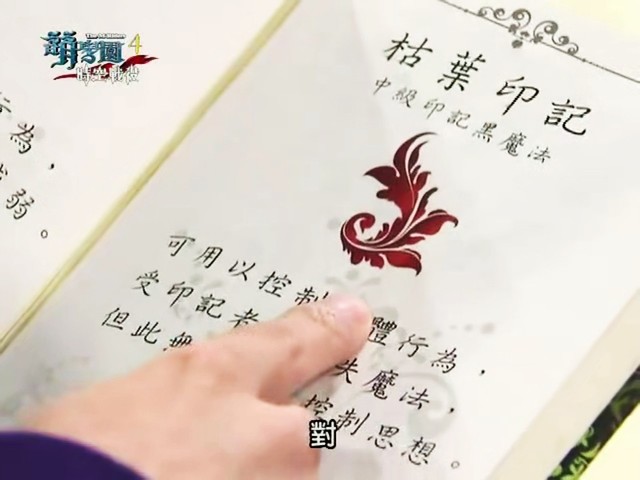 萌學園4
The M Riders
時空戰役
枯葉印記
中級印記黑魔法
可用以控制 體行為，
受印記者 失魔法，
但此無 控制思想。
為，
弱。
對